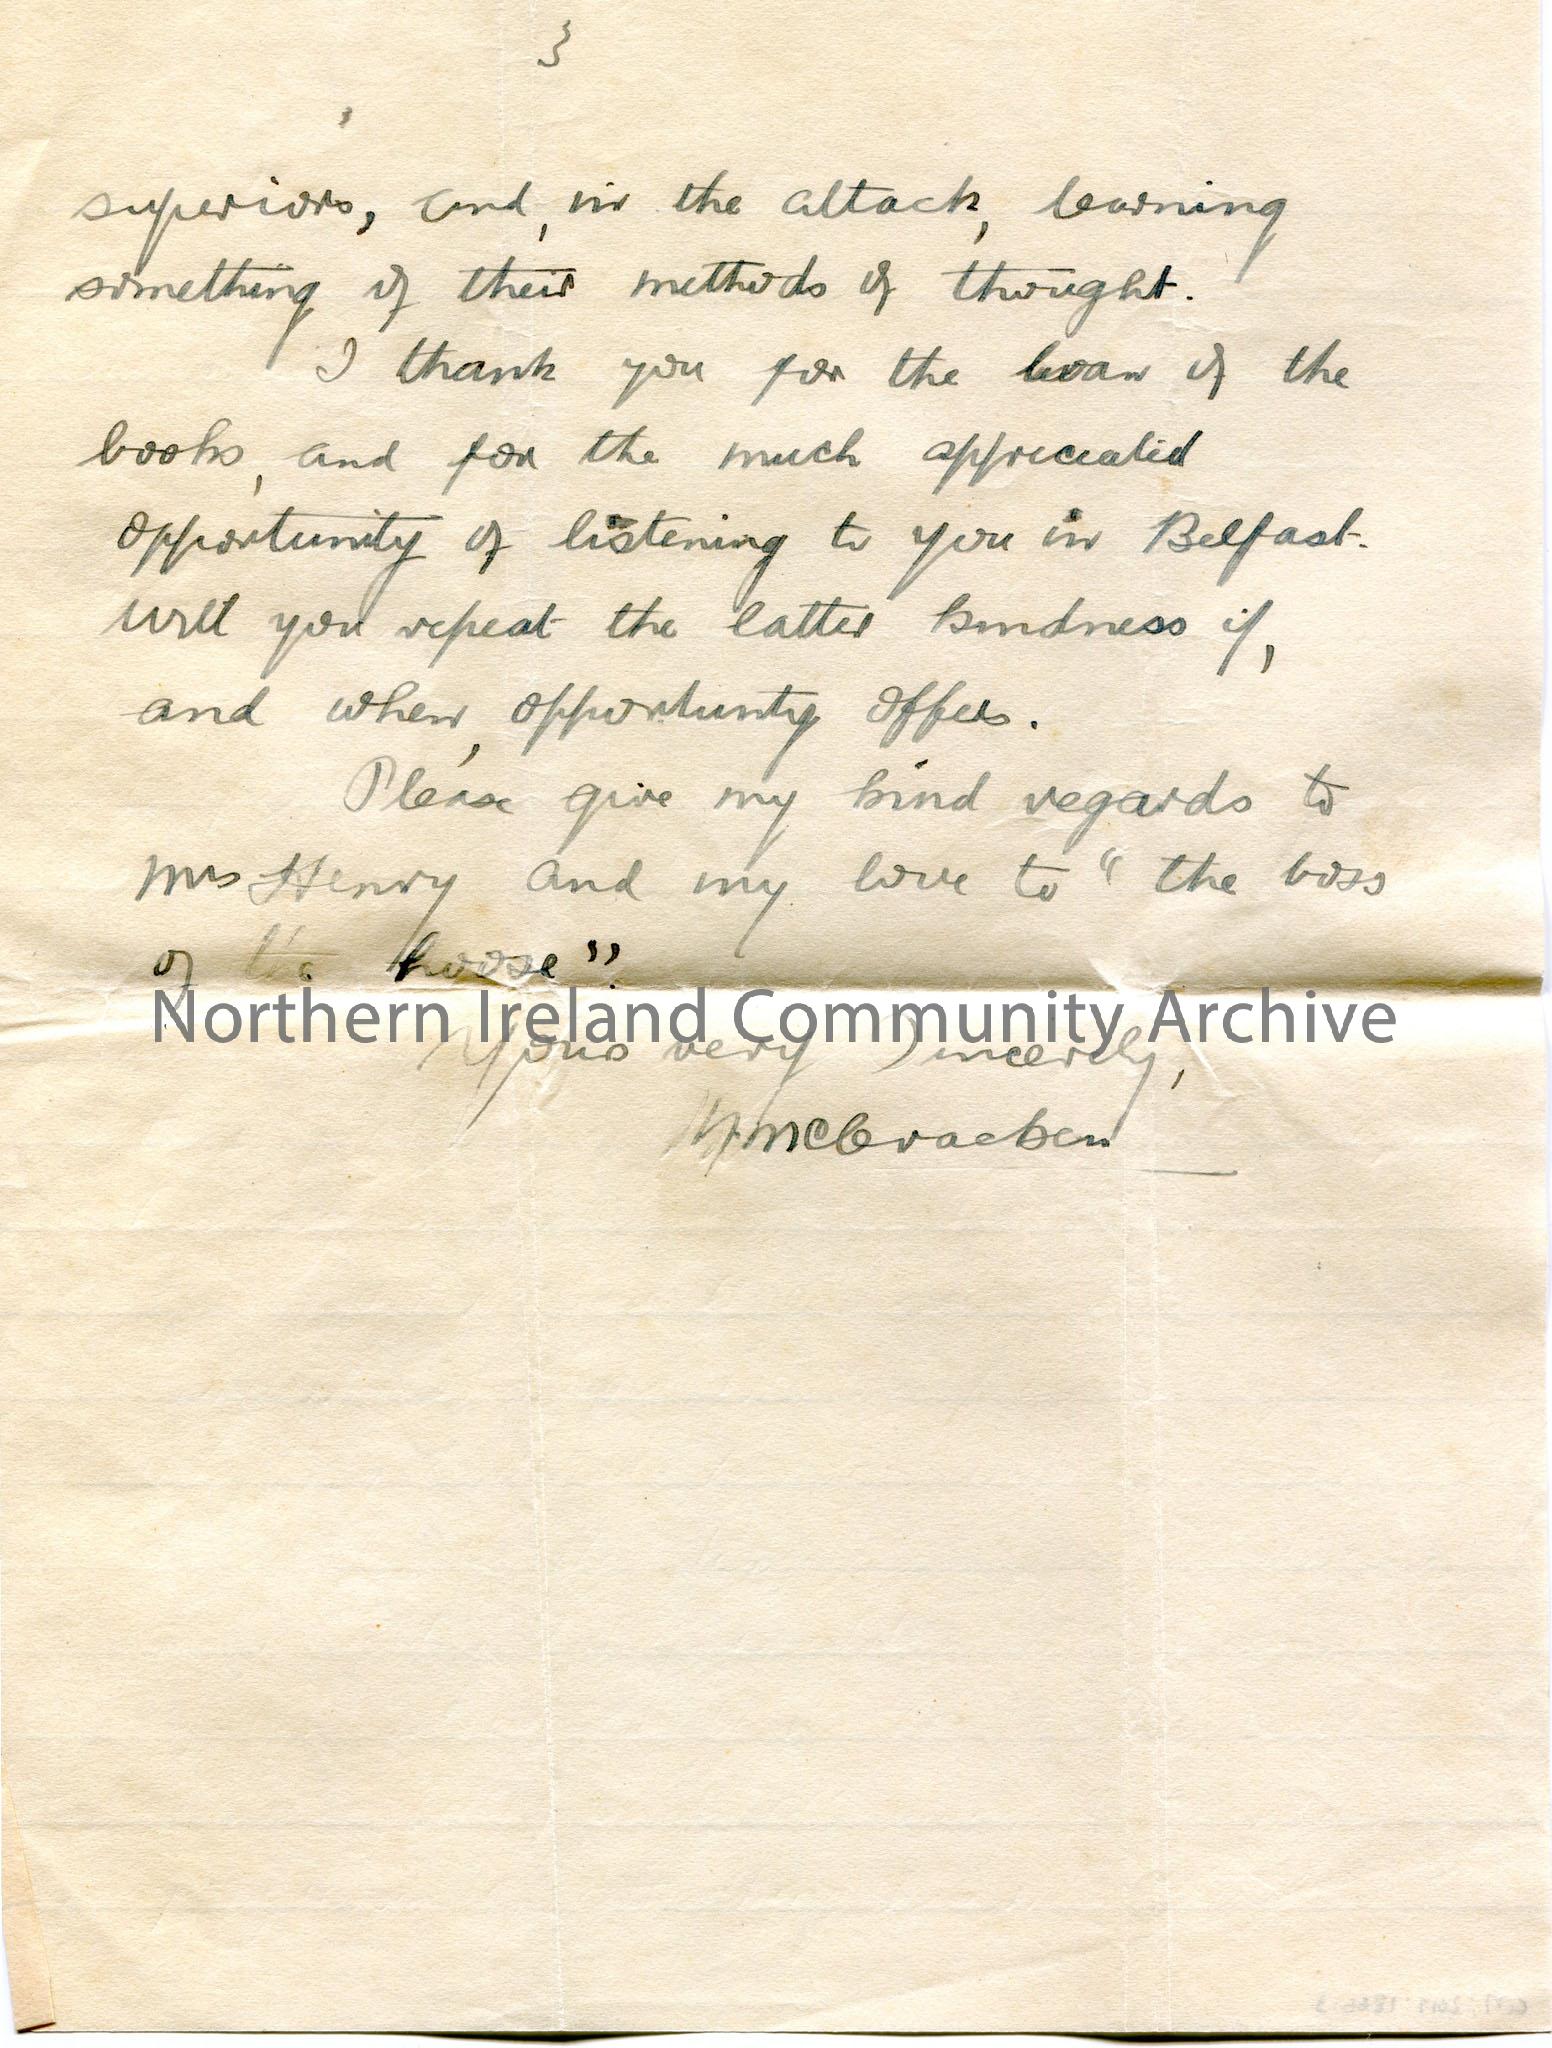 3
superiors, and, in the attack, learning
something of their methods of thought.
I thank you for the loan of the
books, and for the much appreciated
opportunity of listening to you in Belfast.
Will you repeat the latter kindness if,
and when, opportunity offers.
Please give my kind regards to
Mrs Henry and my love to "the boss
of the hoose".
Northern Ireland Community Archive
Yours very Sincerely,
McCracken